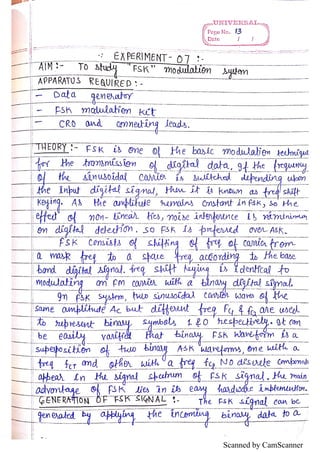 UNIVERSAL
Page No. 13
Date / /
:- EXPERIMENT - 07 :-
AIM :- TO study "FSK" modulation system
APPARATUS REQUIRED :-
- Data generator
- FSK modulation kit
- CRO and connecting leads.
THEORY :- FSK is one of the basic modulation technique
for the transmission of digital data. If the frequency
of the sinusoidal carrier is switched depending upon
the input digital signal, then it is known as freq shift
keying. As the amplitude remains constant in FSK, so the
effect of non-linear ties, noise interference is minimum
on digital detection. So FSK is preferred over ASK.
FSK consists of shifting of freq of carrier from
a mask freq to a space freq, according to the base
band digital signal. freq shift keying is identical to
modulating an FM carrier with a binary digital signal
In FSK system, two sinusoidal carrier wave of the
same amplitude Ac but different freq are used
to represent binary symbols 1 & 0 respectively. It can
be easily varified that binary FSK waveform is a
superposition of two binary ASK waveforms, one with a
freq and other with a freq No discrete
appear in the signal spectrum of FSK signal. The main
advantage of FSK lies in its easy hardware
GENERATION OF FSK SIGNAL :- The FSK signal can be
generated by applying the incoming binary data to a
Scanned by CamScanner